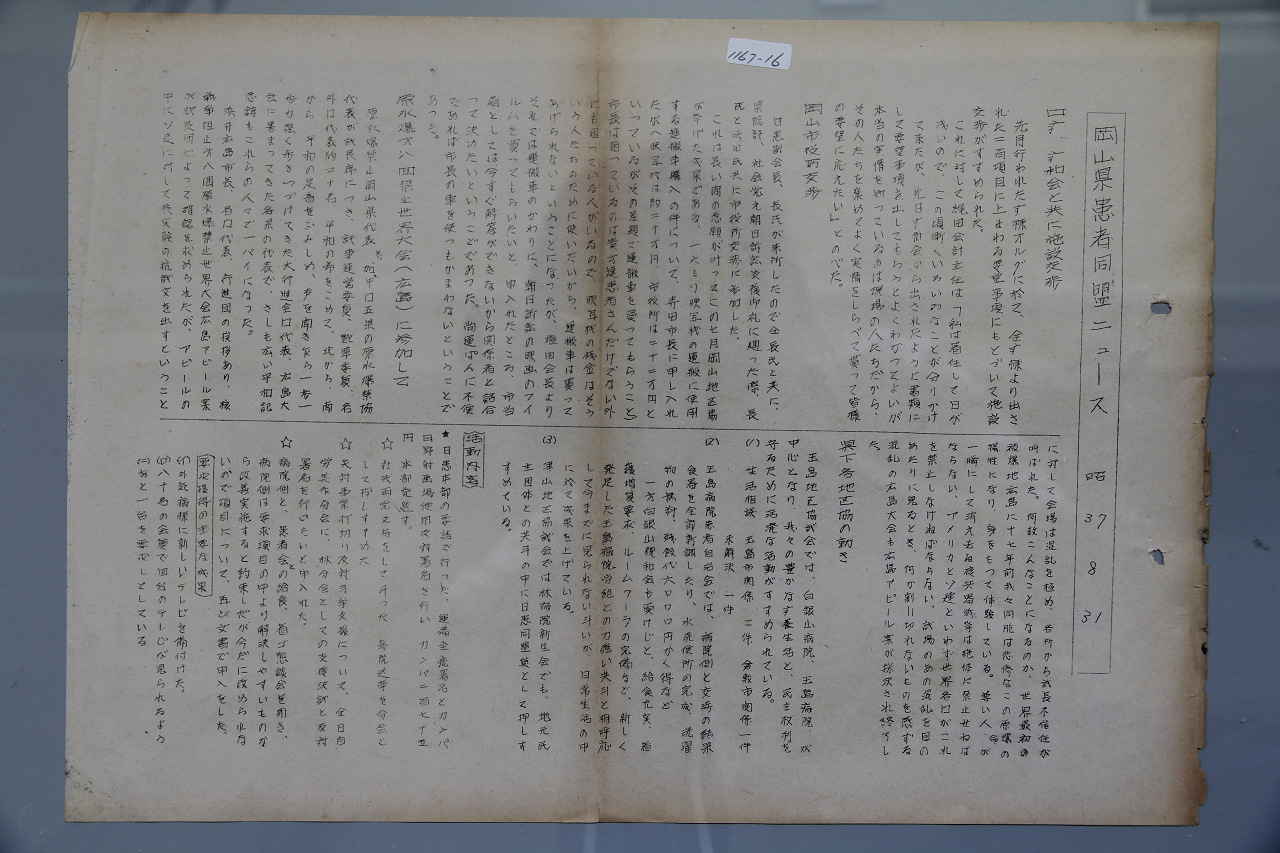 1167-16
岡山県患者同盟ニュース 昭 37 8 31
先月行われたオ療オルグに於て、全オ療より出さ
れた二百項目に上まわる要望事項にもとづいて施設
交歩がすすめられた。
これに対して 会計主任は「私は着任して日が
浅いので、この頃漸くいろいろなことが分りかけ
て来たが、先日 会から出されたように書類に
して要望事項を出してもらうとよくわかってよいが
本当の実情を知っているのは現場の人たちだから、
その人たちを集めてよく実情をしらべて貰って皆様
の要望に応えたい」とのべた。
岡山市役所交歩
日患副会長、長氏が来所したので全長氏と共に、
県議 、社会党え朝日訴訟支援御礼に廻った際、長
氏と 田氏共に市役所交渉に参加した。
これは長い間の念願が叶ってこの七月岡山地区協
が挙げた成果である、一六ミリ映写機の運搬に使用
する運搬車購入の件について、寺田市長に申し入れ
たが(映写機は約二十万円、市役所は二十二万円と
いっているがその差額で運搬車を買ってもらうこと)
市長は困っているのは貴方達患者さんだけでない外
にも困っている人がいるので、映写機の残金はそう
いう人たちのために使いたいから、運搬車は買って
あげられないということになったが、塩田会長より
それでは運搬車のかわりに、朝日訴訟の映画のフイ
ルムを買ってもらいたいと、申入れたところ、市当
局としては今すぐ解答ができないから関係者と話合
って決めたいということであった。尚運ぱんに不便
であれば市長の車を使ってもかまわないということで
あった。
原水爆オ八回禁止世界大会(広島)に参加して
原水爆禁止岡山県代表 名、中口五県の原水爆禁協
代表が議長席につき、議事運営委員、起草委員、各
外口代表約二十名、平和の希をこめて、北から、南
から、平和の足音をふみしめ、声を南き乍ら一歩一
歩力強く歩きつづけてきた大行進全口代表、広島大
会に集まってきた各県の代表で、さしも広い平和記
念館もこれらの人々で一パイになった。
浜井広島市長、各口代表、行進団の挨拶あり、核
戦争阻止オ八回原水爆禁止世界大会広島アピール案
が議長団によって確認を求められたが、アピールの
中にソ連に対して核実験の抗議文を出すということ
に対して会場は混乱を極め、各所から議長不信任が
叫ばれた。何故こんなことになるのか、世界最初の
被爆地広島に十七年前我々同胞は悲惨なこの原爆の
犠牲になり、身をもって体験している。尊い人命が
一瞬にして消え去る核兵器戦争は絶体に禁止せねば
ならない、アメリカとソ連といわず世界各口がこれ
を禁止しなければならない。議場のあの混乱を目の
あたりに見るとき、何か割り切れないものを感ずる
混乱の広島大会も広島アピール案が採決され終了し
た。
県下各地区協の動き
玉島地区協議会では、白銀山病院、玉島病院、が
中心となり、我々の豊かなオ養生活と、民主权利を
守るために活発な活動がすすめられている。
(1) 生活相談 玉島市関係 二件、倉敷市関係一件
未解決 一件
(2) 玉島病院患者自治会では、病院側と交渉の結果
食器を全部新調したり、水洗便所の完成、洗濯
物の無料、残飯代六〇〇〇円かく得など
一方白銀山穆和会も負けじと、給食充実、看
護増員要求、ルームクーラの完備など、新しく
発足した玉島病院労組との力強い共斗と相呼応
して今までに見られない斗いが、日常生活の中
に於て成果を上げている。
(3) 津山地区協議会では林病院新生会でも、地元民
主団体との共斗の中に日患同盟員として押しす
すめている。
活動内容
★日患本部の要請で行った、運 全 署名とカンパ
日野射 場使用反対署名を行い カンパ二百七十五
円 本部え送す。
☆ 社共両党支持をして斗った 病院 を分会と
して押しすすめた
☆ 失対事業打切り反対斗争支援について、全日自
労美作分会に、林分会としての支援決議と反対
署名を行きたいと申入れた。
☆ 病院側と、患者会の給食、看ゴ懇談会を南き、
病院側は要求項目の中より解決しやすいものか
ら改善実施すると約束しだが今だに改められな
いので項目について、再び文書で申入をした。
要求獲得の主要な成果
(イ)外気病棟に新しいテレビを備付けた。
(ロ)八十名の会員で四台のテレビが見られるよう
(ハ)あと一台を要求してしている。